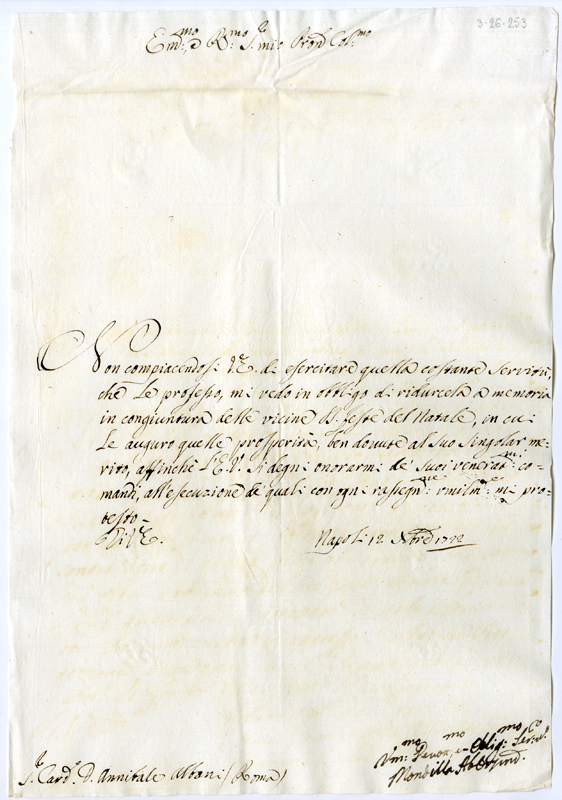 3-26-253
Em.mo e R.mo S.r mio Pron Col.mo
Non compiacendosi V.E. di esercitare quella costante servitù,
che Le professo, mi vedo in obbligo di ridurcela a memoria
in congiuntura delle vicine SS. feste del Natale, in cui
Le auguro quelle prosperità, ben dovute al Suo Singolar me-
rito, affinchè l'E.V. Si degni onorarmi de' Suoi venerat.mi co-
mandi, all'esecuzione de' quali con ogni rassegn.ne umilm.te mi pro-
testo
Di V.E.
Napoli 12 Xbre 1722
S.r Card.e D. Annibale Albani (Roma)
Um.mo Devot.mo e Oblig.mo Serv.
Mondilla